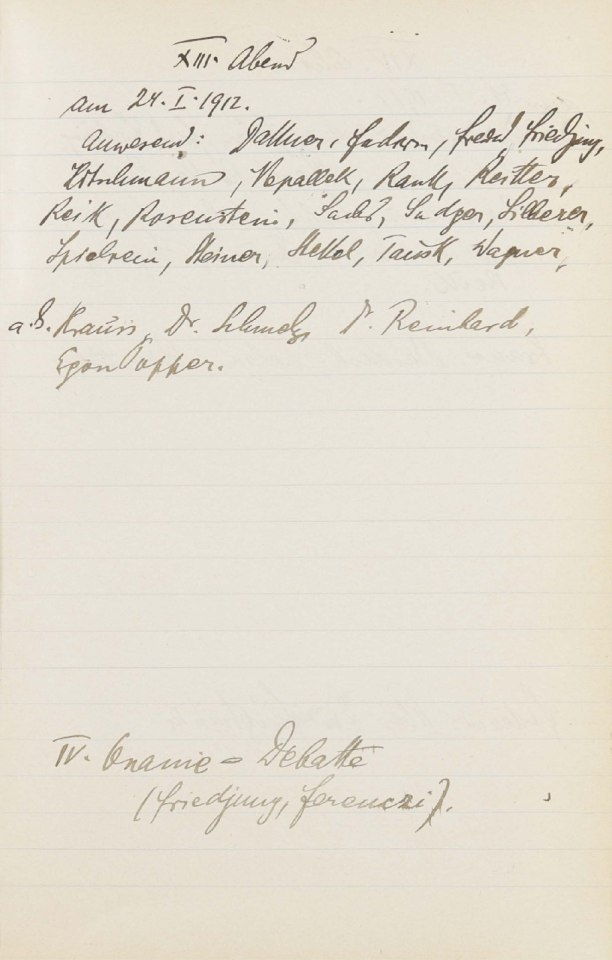 XIII. Abend
am 24. I. 1912.
Anwesend: Dattner, Federn, Freud, Friedjung,
Hitschmann, Nepallek, Rank, Reitler,
Reik, Rosenstein, Sachs, Sadger, Silberer,
Spielrein, Steiner, Stekel, Tausk, Wagner,
a. G. Krauss, Dr. Schmelz, Dr. Reinhard,
Egon Popper.
IV. Onanie = Debatte
(Friedjung, Ferenczi).